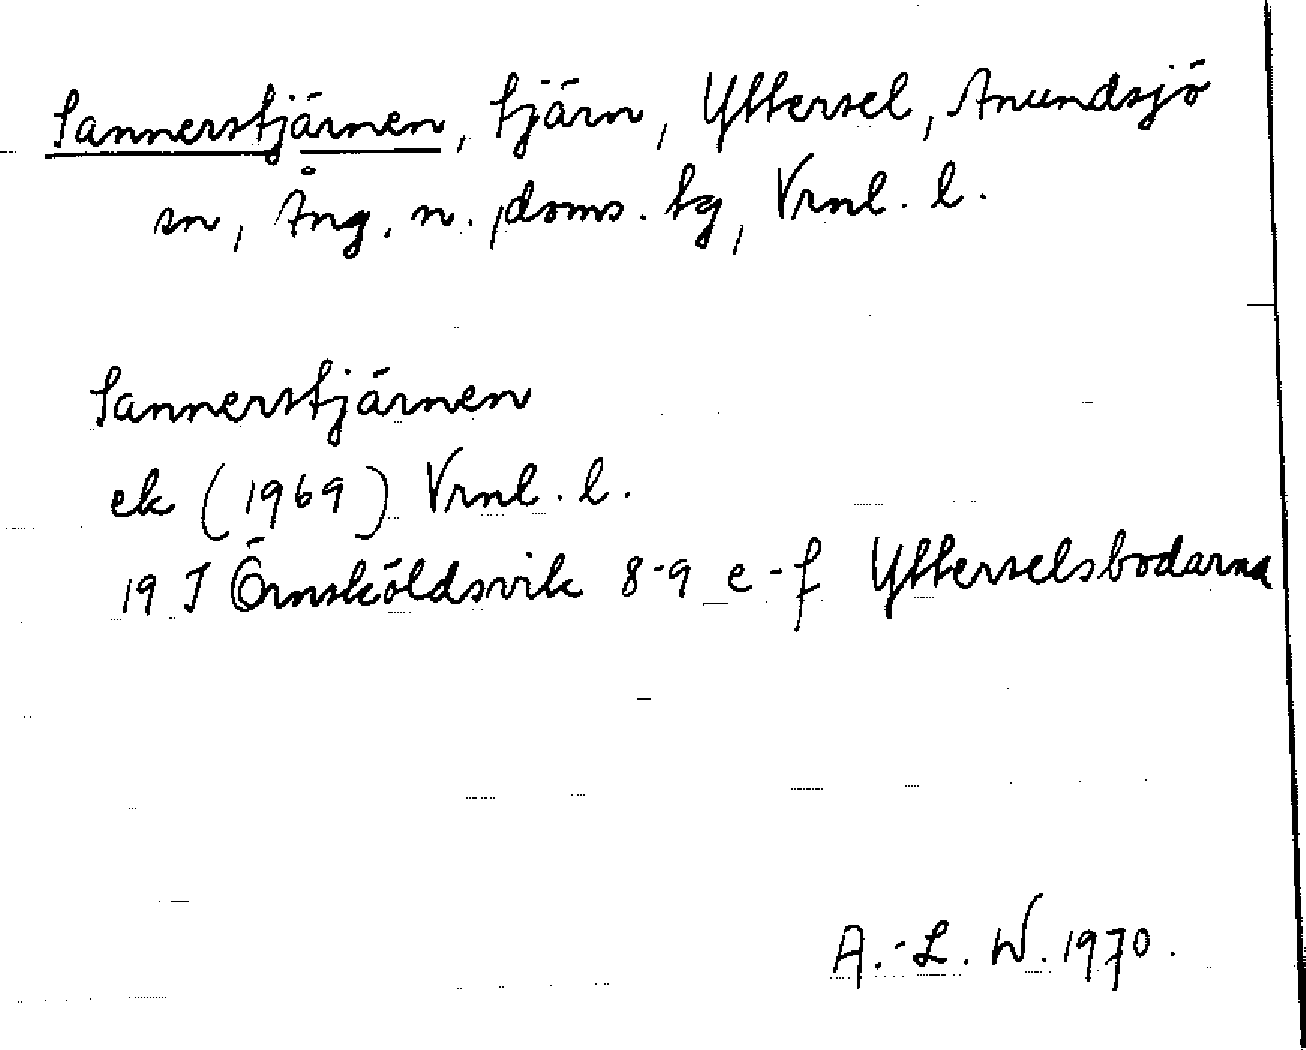 Sannerstjärnen, tjärn, Yttersel, Anundsjö
sn, Ång. n. doms. tg, Vrnl. l.
Sannerstjärnen
ek (1969) Vrnl. l.
19 I Örnsköldsvik 8-9 e-f Ytterselsbodarna
A.-L. W. 1970.